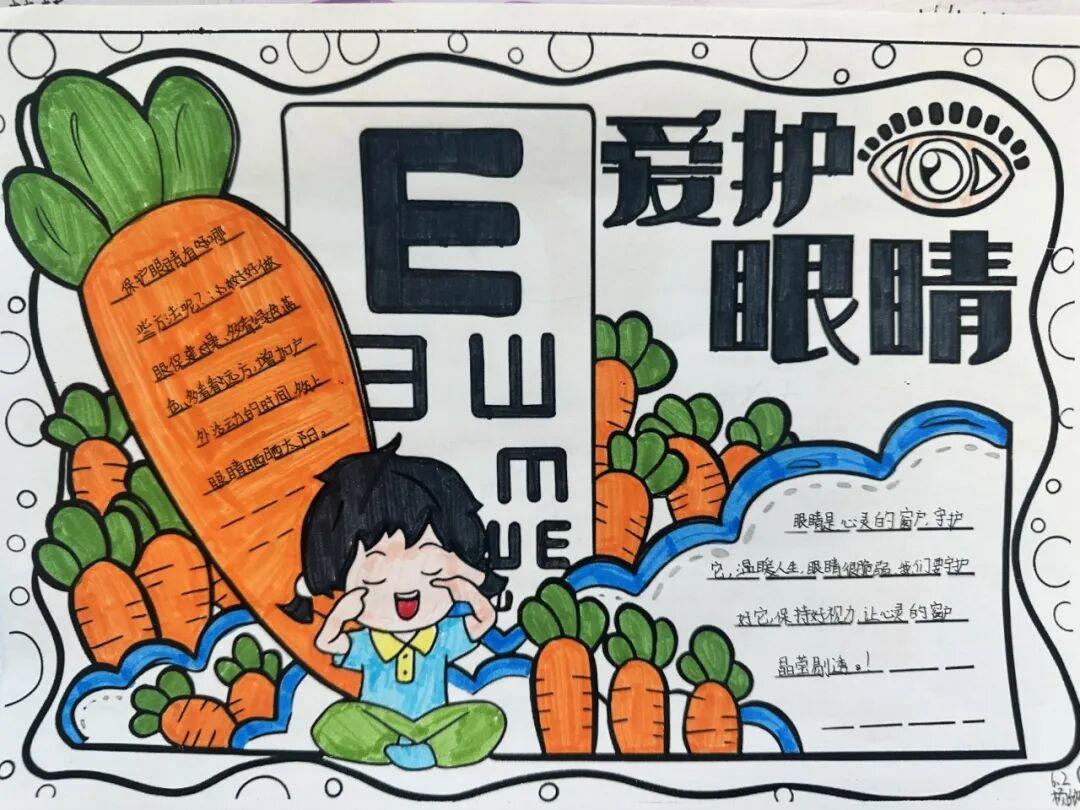 爱护
眼睛
E
E
E
E
E
E
保护眼睛有哪
些方法呢?做好
眼保健操,多看绿色蓝
色,多看看远方,增加户
外活动的时间,多让
眼睛晒晒太阳。
眼睛是心灵的窗户,守护
它,温暖人生,眼睛很脆弱,我们要守护
好它,保持好视力,让心灵的窗户
晶莹剔透。!
6.2